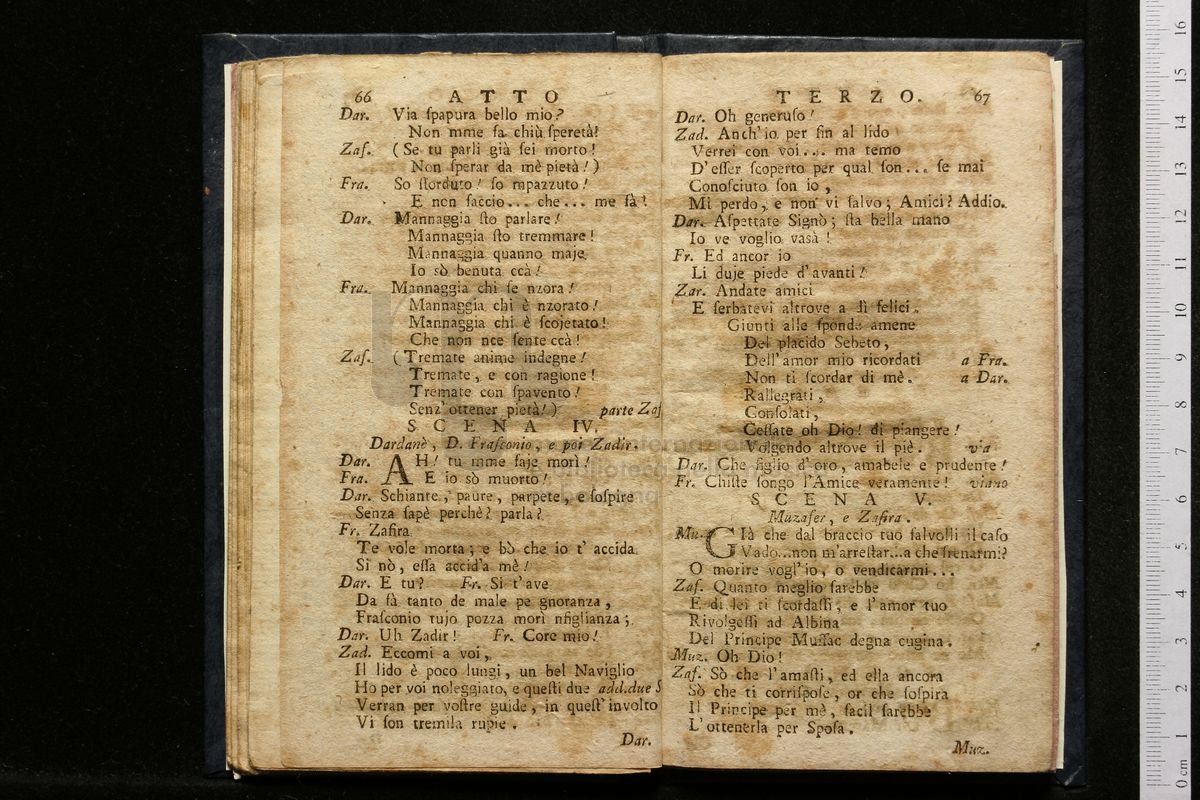 66 ATTO
Dar. Via ſpapura bello mio?
Non mme fa chiù ſperetà!
Zaf. (Se tu parli già ſei morto!
Non ſperar da mè pietà!)
Fra. So ſtorduto! ſo mpazzuto!
E non ſaccio... che... me fà!
Dar. Mannaggia ſto parlare!
Mannaggia ſto tremmare!
Mannaggia quanno maje
Io sò benuta ccà!
Fra. Mannaggia chi ſe nzora!
Mannaggia chi è nzorato!
Mannaggia chi è ſcojetato!
Che non nce ſente ccà!
Zaf. (Tremate anime indegne!
Tremate, e con ragione!
Tremate con ſpavento!
Senz' ottener pietà!) parte Zaf
SCENA IV.
Dardanè, D. Fraſconio, e poi Zadir.
Dar. AH! tu mme faje morì!
Fra. E io sò muorto!
Dar. Schiante, paure, parpete, e ſoſpire
Senza ſapè perchè? parla?
Fr. Zafira
Te vole morta; e bò che io t' accida
Si nò, eſſa accid'a mè!
Dar. E tu? Fr. Si t'ave
Da fà tanto de male pe gnoranza,
Fraſconio tujo pozza morì nfiglianza;
Dar. Uh Zadir! Fr. Core mio!
Zad. Eccomi a voi,
Il lido è poco lungi, un bel Naviglio
Ho per voi noleggiato, e queſti due add.due S
Verran per voſtre guide, in queſt' involto
Vi ſon tremila rupie.
Dar.
TERZO. 67
Dar. Oh generuſo!
Zad. Anch'io per fin al lido
Verrei con voi... ma temo
D'eſſer ſcoperto per qual ſon... ſe mai
Conoſciuto ſon io,
Mi perdo, e non vi ſalvo; Amici? Addio.
Dar. Aſpettate Signò; ſta bella mano
Io ve voglio vasà!
Fr. Ed ancor io
Li duje piede d'avanti!
Zar. Andate amici
E ſerbatevi altrove a dì felici.
Giunti alle ſponde amene
Del placido Sebeto,
Dell'amor mio ricordati a Fra.
Non ti ſcordar di mè. a Dar.
Rallegrati,
Conſolati,
Ceſſate oh Dio! di piangere!
Volgendo altrove il piè. via
Dar. Che figlio d'oro, amabele e prudente!
Fr. Chiſte ſongo l'Amice veramente! viano
SCENA V.
Muzafer, e Zafira.
Mu. GIà che dal braccio tuo ſalvolli il caſo
Vado...non m'arreſtar...a che frenarmi?
O morire vogl'io, o vendicarmi...
Zaf. Quanto meglio ſarebbe
E di lei ti ſcordaſſi, e l'amor tuo
Rivolgeſſi ad Albina
Del Principe Muſſac degna cugina.
Muz. Oh Dio!
Zaf. Sò che l'amaſti, ed ella ancora
Sò che ti corriſpoſe, or che ſoſpira
Il Principe per mè, facil ſarebbe
L'ottenerla per Spoſa.
Muz.